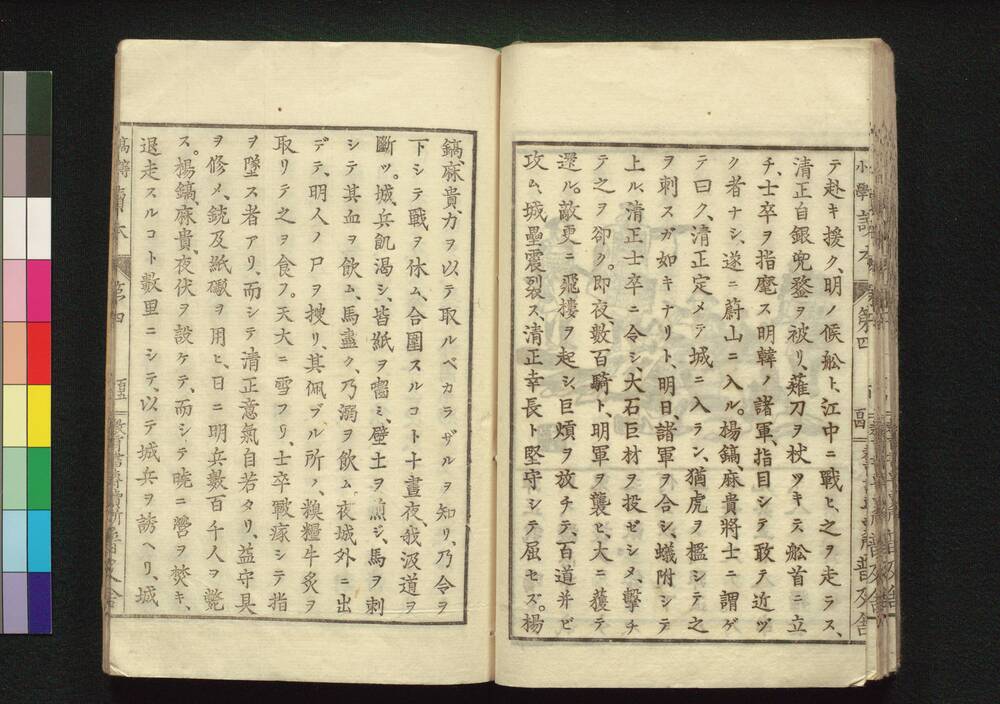 テ赴キ援ク、明ノ候舩ト、江中ニ戰ヒ、之ヲ走ラス、
清正自銀兜鍪ヲ被リ、薙刀ヲ杖ツキテ、舩首ニ立
チ、士卒ヲ指麾ス、明韓ノ諸軍、指目シテ、敢テ近ヅ
ク者ナシ、遂ニ蔚山ニ入ル。楊鎬、麻貴將士ニ謂ゲ
テ曰ク、清正定メテ城ニ入ラン、猶虎ヲ檻シテ之
ヲ刺スガ如キナリト、明日、諸軍ヲ合シ、蟻附シテ
上ル、清正士卒ニ令シ、大石巨材ヲ投ゼシメ、擊チ
テ之ヲ卻ク。即夜數百騎ト、明軍ヲ襲ヒ、大ニ獲テ
還ル。敵更ニ飛樓ヲ起シ、巨熕ヲ放チテ、百道并ビ
攻ム、城壘震裂ス、清正幸長ト堅守シテ屈セズ。楊
小學讀本
第四
鎬、麻貴、力ヲ以テ取ルベカラザルヲ知リ、乃令ヲ
下シテ戰ヲ休ム、合圍スルコト十晝夜、我汲道ヲ
斷ツ。城兵飢渴シ、皆紙ヲ嚙ミ、壁土ヲ煎ジ、馬ヲ刺
シテ其血ヲ飲ム、馬盡ク、乃溺ヲ飲ム、夜城外ニ出
デテ、明人ノ尸ヲ搜リ、其佩ブル所ノ、糗糧牛炙ヲ
取リテ之ヲ食フ。天大ニ雪フリ、士卒戰瘃シテ指
ヲ墜ス者アリ、而シテ清正意氣自若タリ、益守具
ヲ修メ、銃及紙礮ヲ用ヒ、日ニ明兵數百千人ヲ斃
ス。楊鎬、麻貴、夜伏ヲ設ケテ、而シテ曉ニ營ヲ焚キ、
退走スルコト數里ニシテ、以テ城兵ヲ誘ヘリ、城